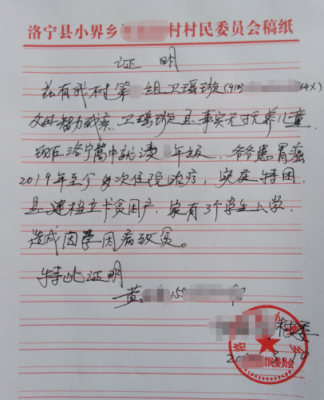 洛宁县小界乡 村村民委员会稿纸
证明
兹有我村第 组卫瑶璇(410 34X)
父母智力残疾,卫瑶璇是事实无抚养儿童
现在洛宁 中就读 年级,爷爷患胃癌
2019年至今多次住院治疗,家庭特困
是建档立卡贫困户,家有3个学生上学,
造成因学因病致贫。
特此证明
黄 155
村委
村民委员会